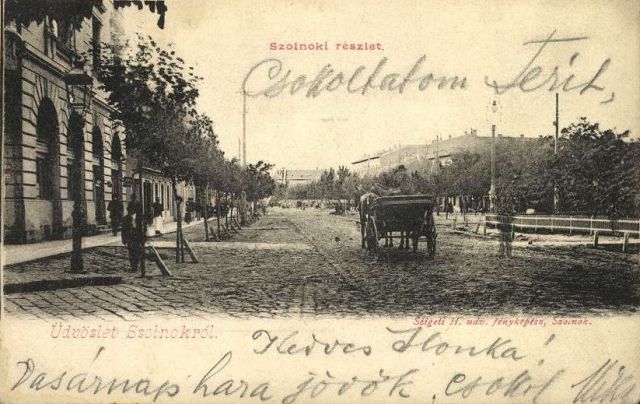 Szolnoki részlet.
Csokoltatom Terit,
Üdvözlet Szolnokról.
Szigeti H. udv. fényképész, Szolnok.
Kedves Ilonka!
Vasárnap hara jövök, csokol